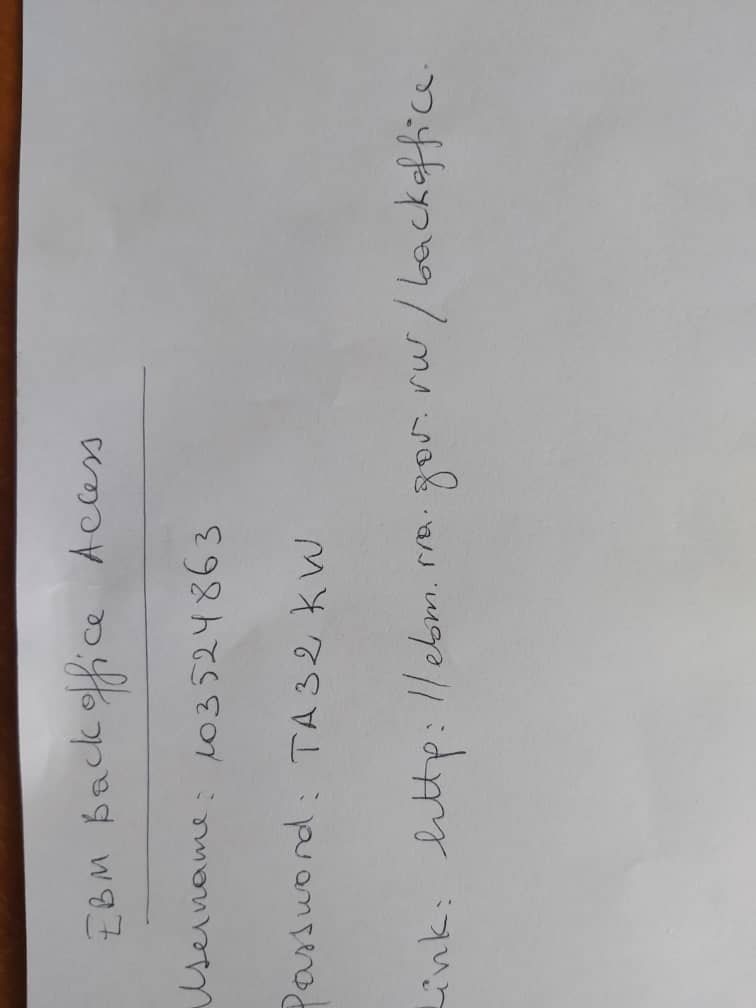 EBM Backoffice Access
Username: 103524863
Password: TA32KW
Link: http://ebm.rra.gov.rw/backoffice.